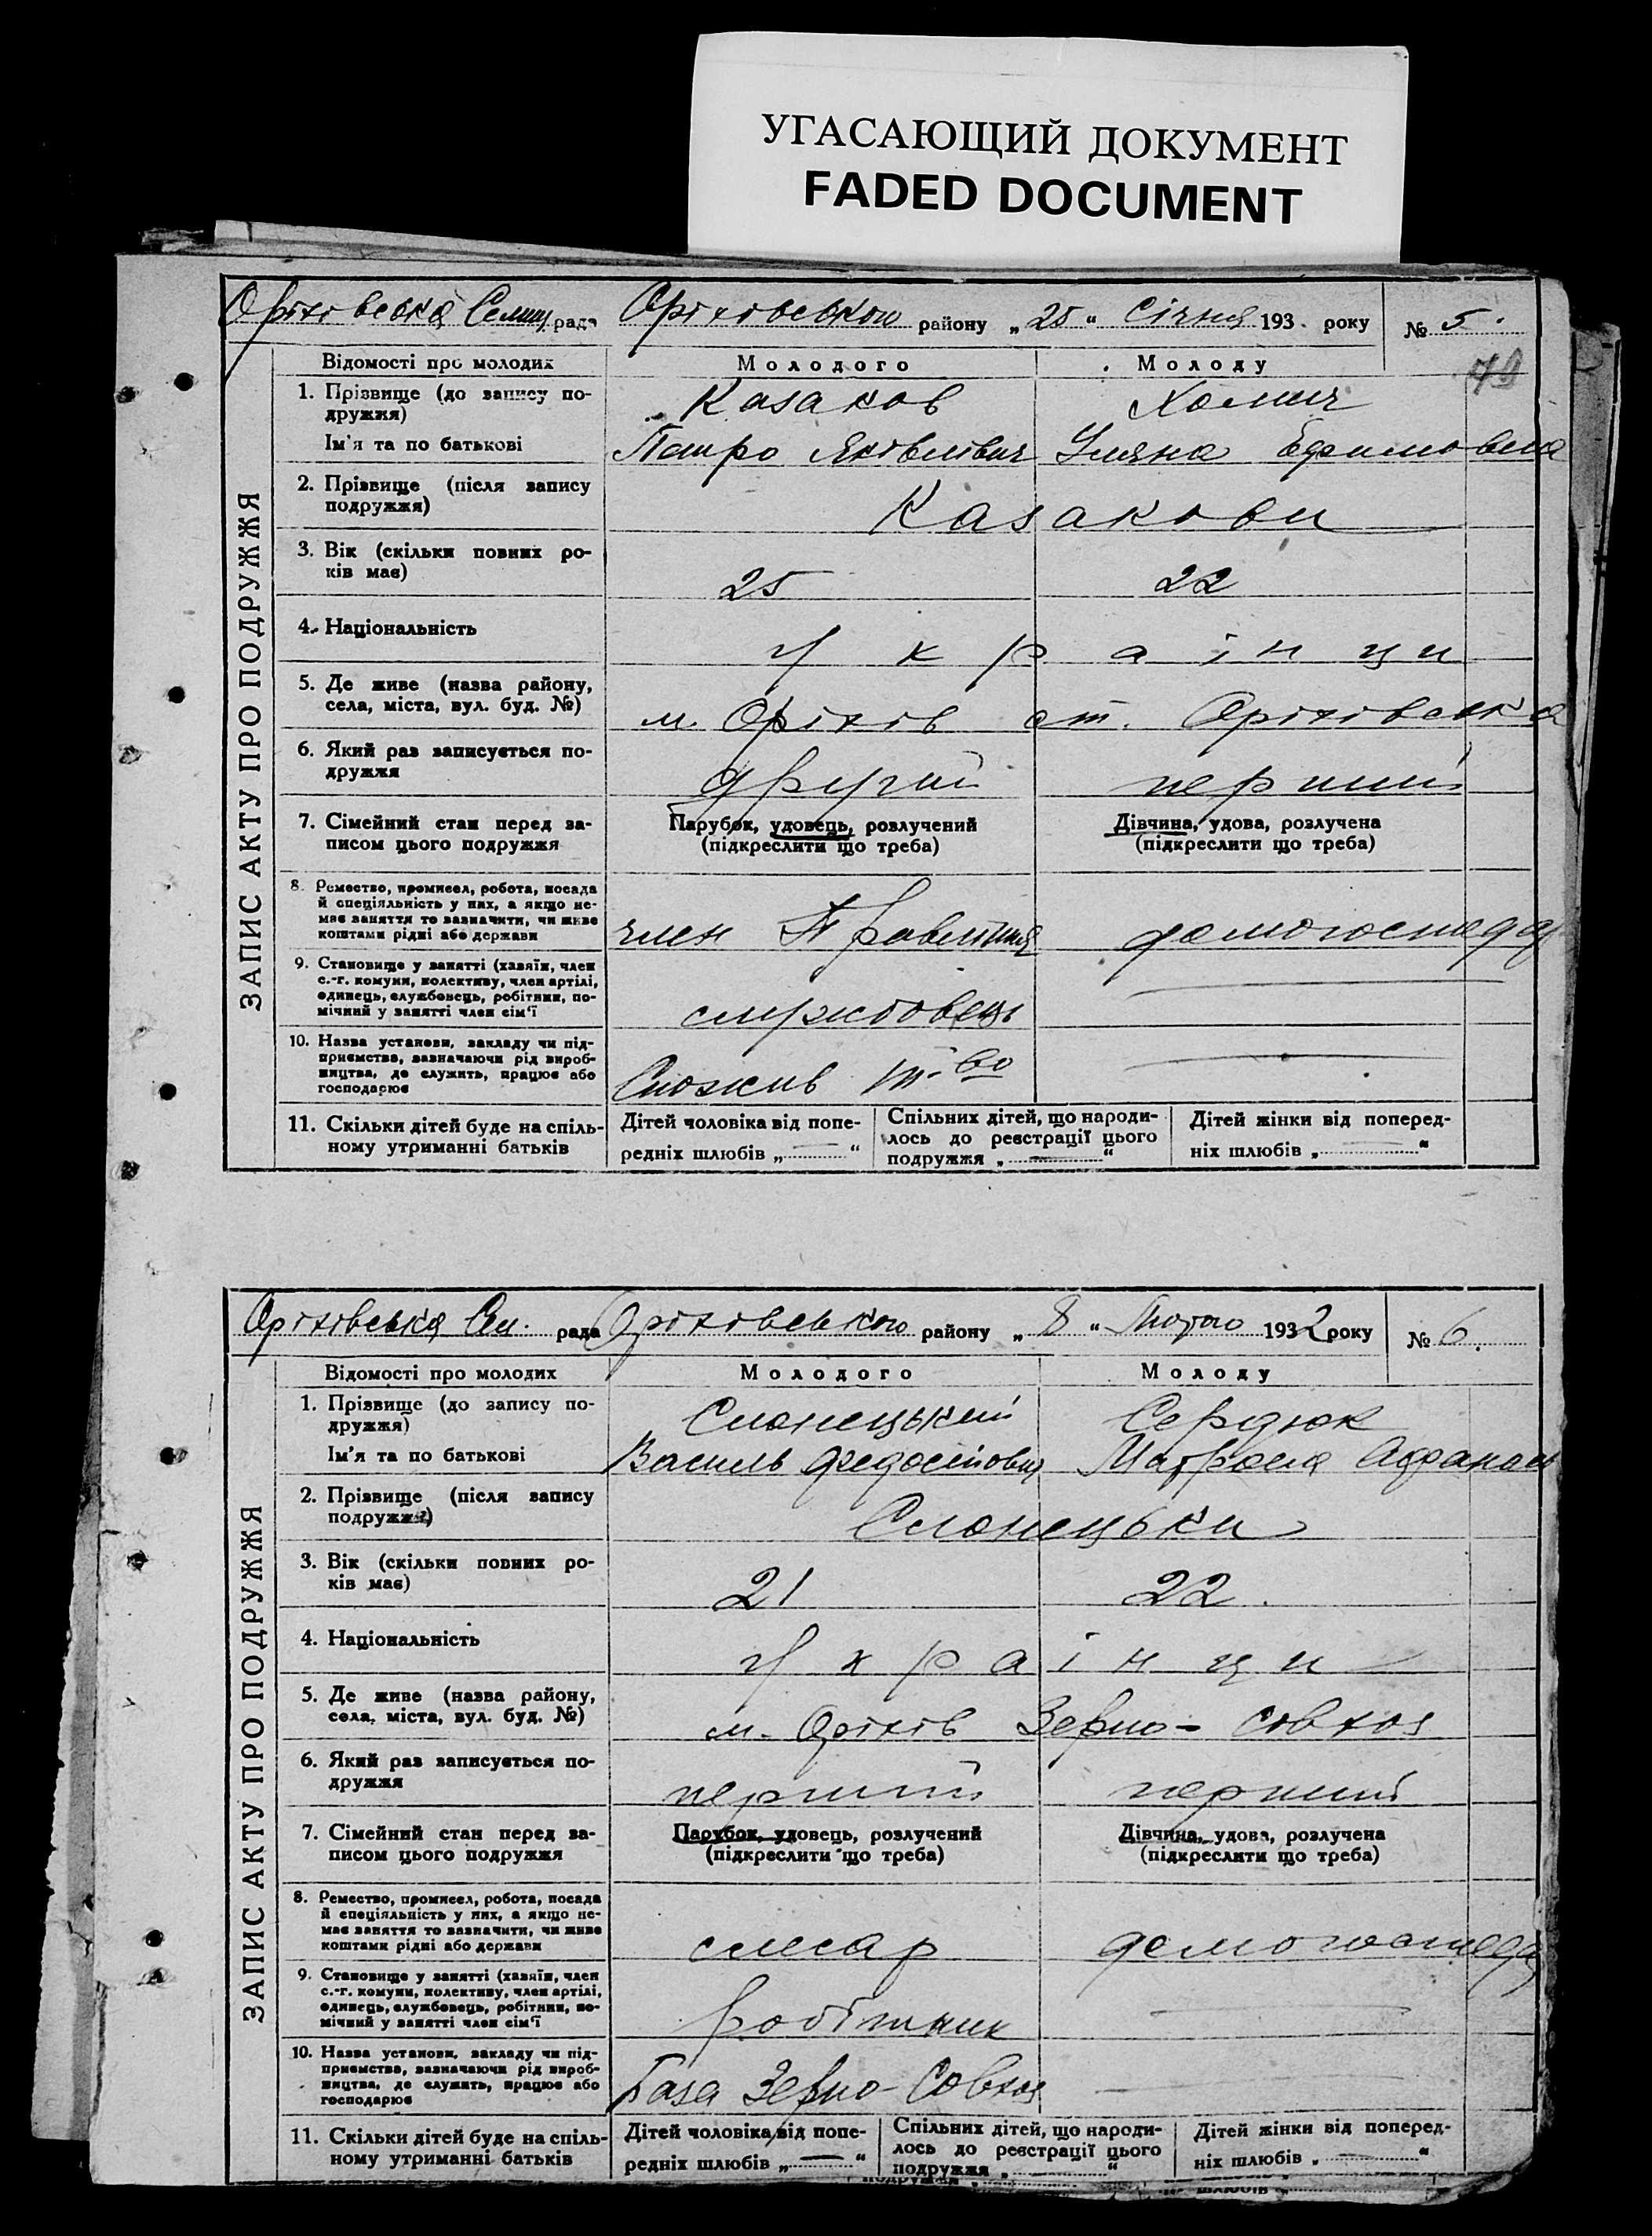 УГАСАЮЩИЙ ДОКУМЕНТ
FADED DOCUMENT
Оріхівська Селищ рада Оріхівського району „ 25 “ Січня 193 . року № 5.
ЗАПИС АКТУ ПРО ПОДРУЖЖЯ
Відомості про молодих Молодого Молоду
1. Прізвище (до запису по-
дружжя) Казаков Хомич
Ім'я та по батькові Петро Яківлівич Уляна Ефимовна
2. Прізвище (після запису
подружжя) Казакови
3. Вік (скільки повних ро-
ків має) 25 22
4. Національність Українци
5. Де живе (назва району,
села, міста, вул. буд. №) м. Оріхів ст. Оріхівська
6. Який раз записується по-
дружжя другий перший
7. Сімейний стан перед за-
писом цього подружжя
Парубок, удовець, розлучений
(підкреслити що треба)
Дівчина, удова, розлучена
(підкреслити що треба)
8. Ремество, промисел, робота, посада
й спеціяльність у них, а якщо не-
має заняття то зазначити, чи живе
коштами рідні або держави
член Правління домогосподар
9. Становище у занятті (хазяїн, член
с.-г. комуни, колективу, член артілі,
одинець, службовець, робітник, по-
мічний у занятті член сім'ї
службовець
10. Назва установи, закладу чи під-
приємства, зазначаючи рід вироб-
ництва, де служить, працює або
господарює
Спожив т-во
11. Скільки дітей буде на спіль-
ному утриманні батьків
Дітей чоловіка від попе-
редніх шлюбів „ — “
Спільних дітей, що народи-
лось до реєстрації цього
подружжя „ — “
Дітей жінки від поперед-
ніх шлюбів „ — “
Оріхівська Сел. рада Оріхівського району „ 8 “ Лютого 1932 року № 6.
ЗАПИС АКТУ ПРО ПОДРУЖЖЯ
Відомості про молодих Молодого Молоду
1. Прізвище (до запису по-
дружжя) Слонецький Сердюк
Ім'я та по батькові Василь Федосійович Матрона Афанас
2. Прізвище (після запису
подружжя) Слонецьки
3. Вік (скільки повних ро-
ків має) 21 22.
4. Національність Українци
5. Де живе (назва району,
села, міста, вул. буд. №) м. Оріхів Зерно-совхоз
6. Який раз записується по-
дружжя перший перший
7. Сімейний стан перед за-
писом цього подружжя
Парубок, удовець, розлучений
(підкреслити що треба)
Дівчина, удова, розлучена
(підкреслити що треба)
8. Ремество, промисел, робота, посада
й спеціяльність у них, а якщо не-
має заняття то зазначити, чи живе
коштами рідні або держави
слесар домогосподар
9. Становище у занятті (хазяїн, член
с.-г. комуни, колективу, член артілі,
одинець, службовець, робітник, по-
мічний у занятті член сім'ї
робітник
10. Назва установи, закладу чи під-
приємства, зазначаючи рід вироб-
ництва, де служить, працює або
господарює
База Зерно-Совхоз
11. Скільки дітей буде на спіль-
ному утриманні батьків
Дітей чоловіка від попе-
редніх шлюбів „ — “
Спільних дітей, що народи-
лось до реєстрації цього
подружжя „ — “
Дітей жінки від поперед-
ніх шлюбів „ — “